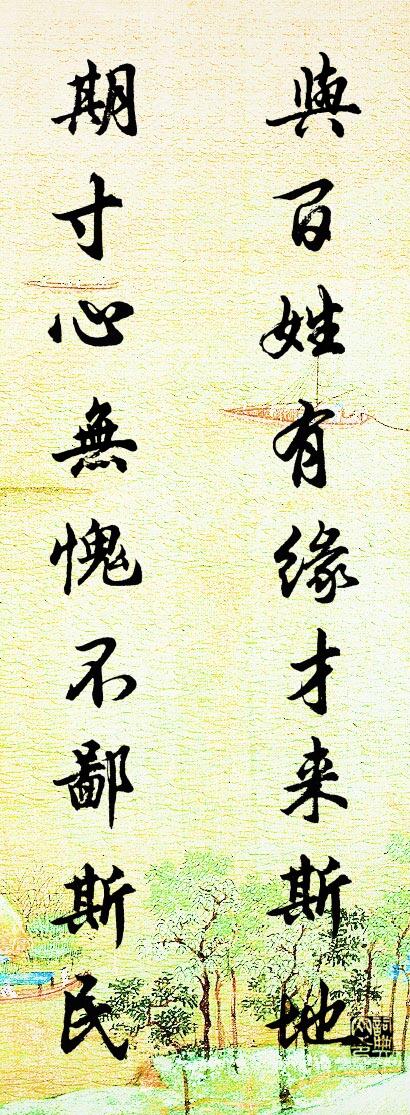 與百姓有缘才来斯地
期寸心無愧不鄙斯民